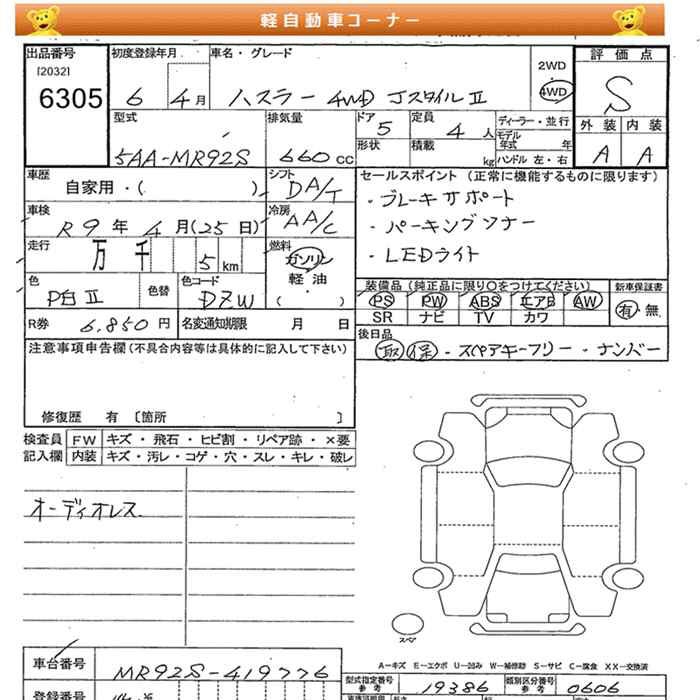 軽自動車コーナー
出品番号 初度登録年月 車名・グレード 評価点
[2032]
6305
6 4月 ハスラー 4WD Jスタイル II
2WD
4WD
S
型式 排気量 ドア 定員 ディーラー・並行 外装 内装
5AA-MR92S 660 CC 5 4 人 モデル年式 年 A A
形状 積載 kg ハンドル 左・右
車歴 自家用・( ) シフト DA/T
セールスポイント (正常に機能するものに限ります)
・ブレーキサポート
・パーキングソナー
・LEDライト
車検 R9年 4月(25日) 冷房 AA/C
走行 万 千 5 km 燃料 ガソリン
軽・油
( )
色 P白II 色替 色コード DZW
装備品 (純正品に限り○をつけてください) 新車保証書
PS PW ABS エアB AW 有・無
SR ナビ TV カワ
R券 6,850円 名変通知期限 月 日
後日品
取 保・スペアキーフリー・ナンバー
注意事項申告欄(不具合内容等は具体的に記入して下さい)
修復歴 有 〔箇所 〕
検査員 FW キズ・飛石・ヒビ割・リペア跡・×要
記入欄 内装 キズ・汚レ・コゲ・穴・スレ・キレ・破レ
オーディオレス
スペア
A−キズ E−エクボ U−凹み W−補修跡 S−サビ C−腐食 XX−交換済
車台番号 MR92S-419776
型式指定番号 参考 19386 類別区分番号 参考 0606
登録番号